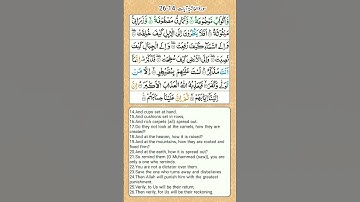 سورة الغاشية آيات 14-26
وَّاَكْوَابٌ مَّوْضُوْعَةٌ ۙ وَّنَمَارِقُ مَصْفُوْفَةٌ ۙ وَّزَرَابِيُّ
مَبْثُوْثَةٌ ؕ اَفَلَا يَنْظُرُوْنَ اِلَى الْاِبِلِ كَيْفَ خُلِقَتْ
وَاِلَى السَّمَآءِ كَيْفَ رُفِعَتْ وَاِلَى الْجِبَالِ كَيْفَ
نُصِبَتْ وَاِلَى الْاَرْضِ كَيْفَ سُطِحَتْ فَذَكِّرْ اِنَّمَآ
اَنْتَ مُذَكِّرٌ لَسْتَ عَلَيْهِمْ بِمُصَيْطِرٍ اِلَّا مَنْ
تَوَلّٰى وَكَفَرَ فَيُعَذِّبُهُ اللّٰهُ الْعَذَابَ الْاَكْبَرَ اِنَّ
اِلَيْنَآ اِيَابَهُمْ ثُمَّ اِنَّ عَلَيْنَا حِسَابَهُمْ
14.And cups set at hand.
15.And cushions set in rows,
16.And rich carpets (all) spread out.
17.Do they not look at the camels, how they are
created?
18.And at the heaven, how it is raised?
19.And at the mountains, how they are rooted and
fixed firm?
20.And at the earth, how it is spread out?
21.So remind them (O Muhammad (saw)), you are
only a one who reminds.
22.You are not a dictator over them.
23.Save the one who turns away and disbelieves
24.Then Allah will punish him with the greatest
punishment.
25.Verily, to Us will be their return;
26.Then verily, for Us will be their reckoning.